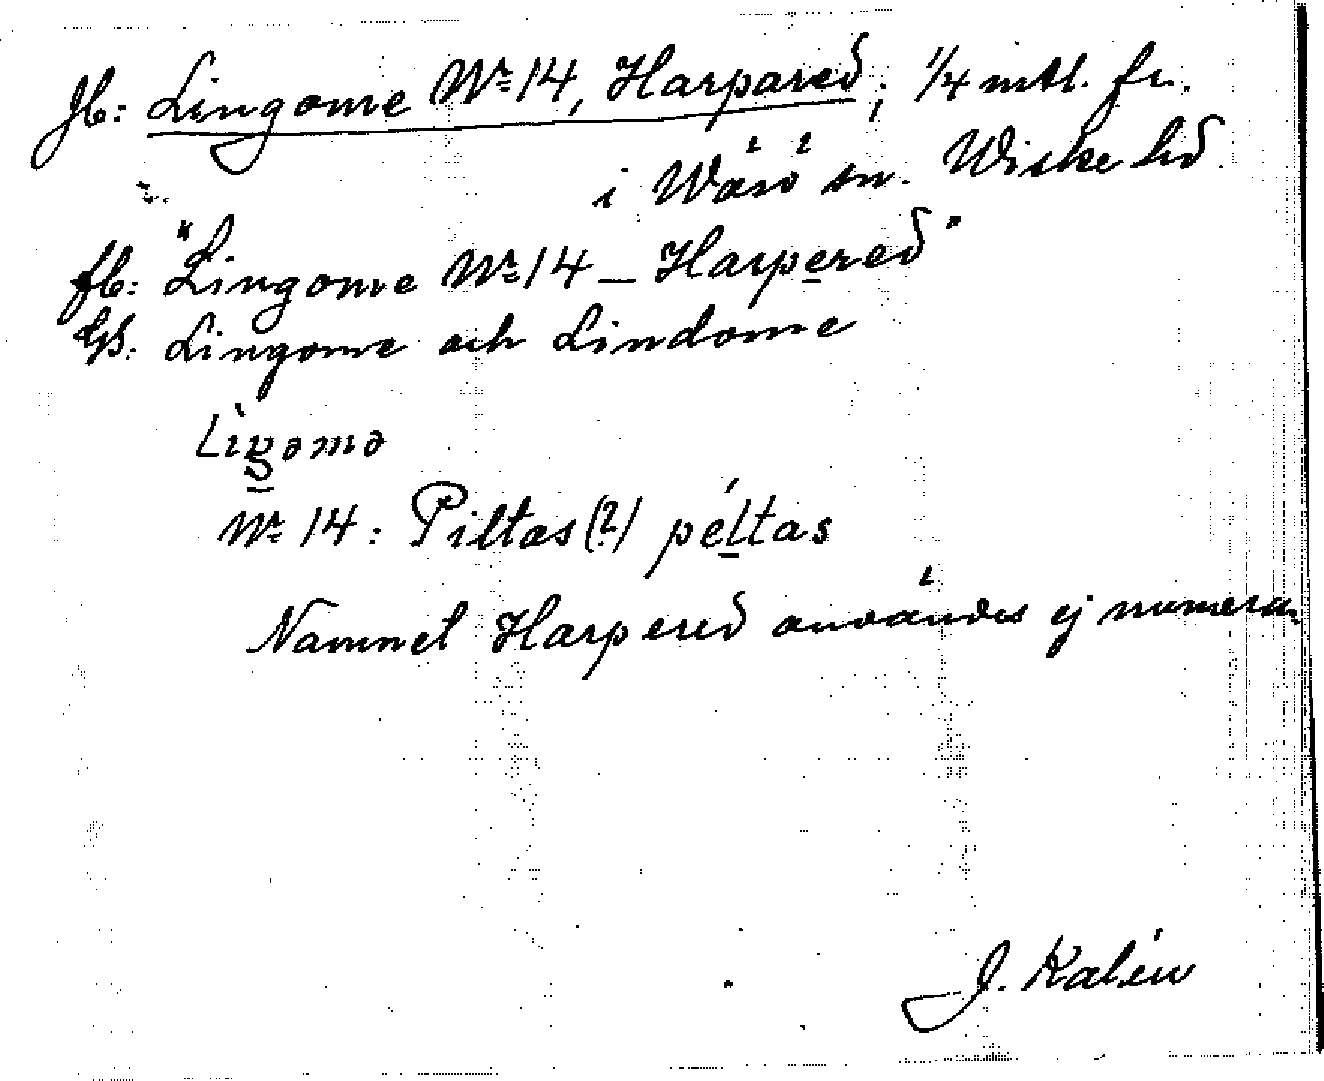 Jb: Lingome No 14, Harpared; 1/4 mtl. fr.
i Värö sn. Wiske hd
fb: "Lingome No 14 – Harpered"
GB: Lingome och Lindome
No 14: Piltas (?) péltas
Namnet Harpered användes ej numera.
J. Kalén